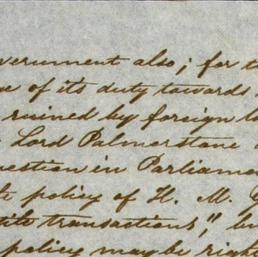 vernment also; for t
e of its duty towards
ruined by foreign l
Lord Palmerstone
uestion in Parliame
policy of H. M. G
tile transactions," bu
policy may be righ